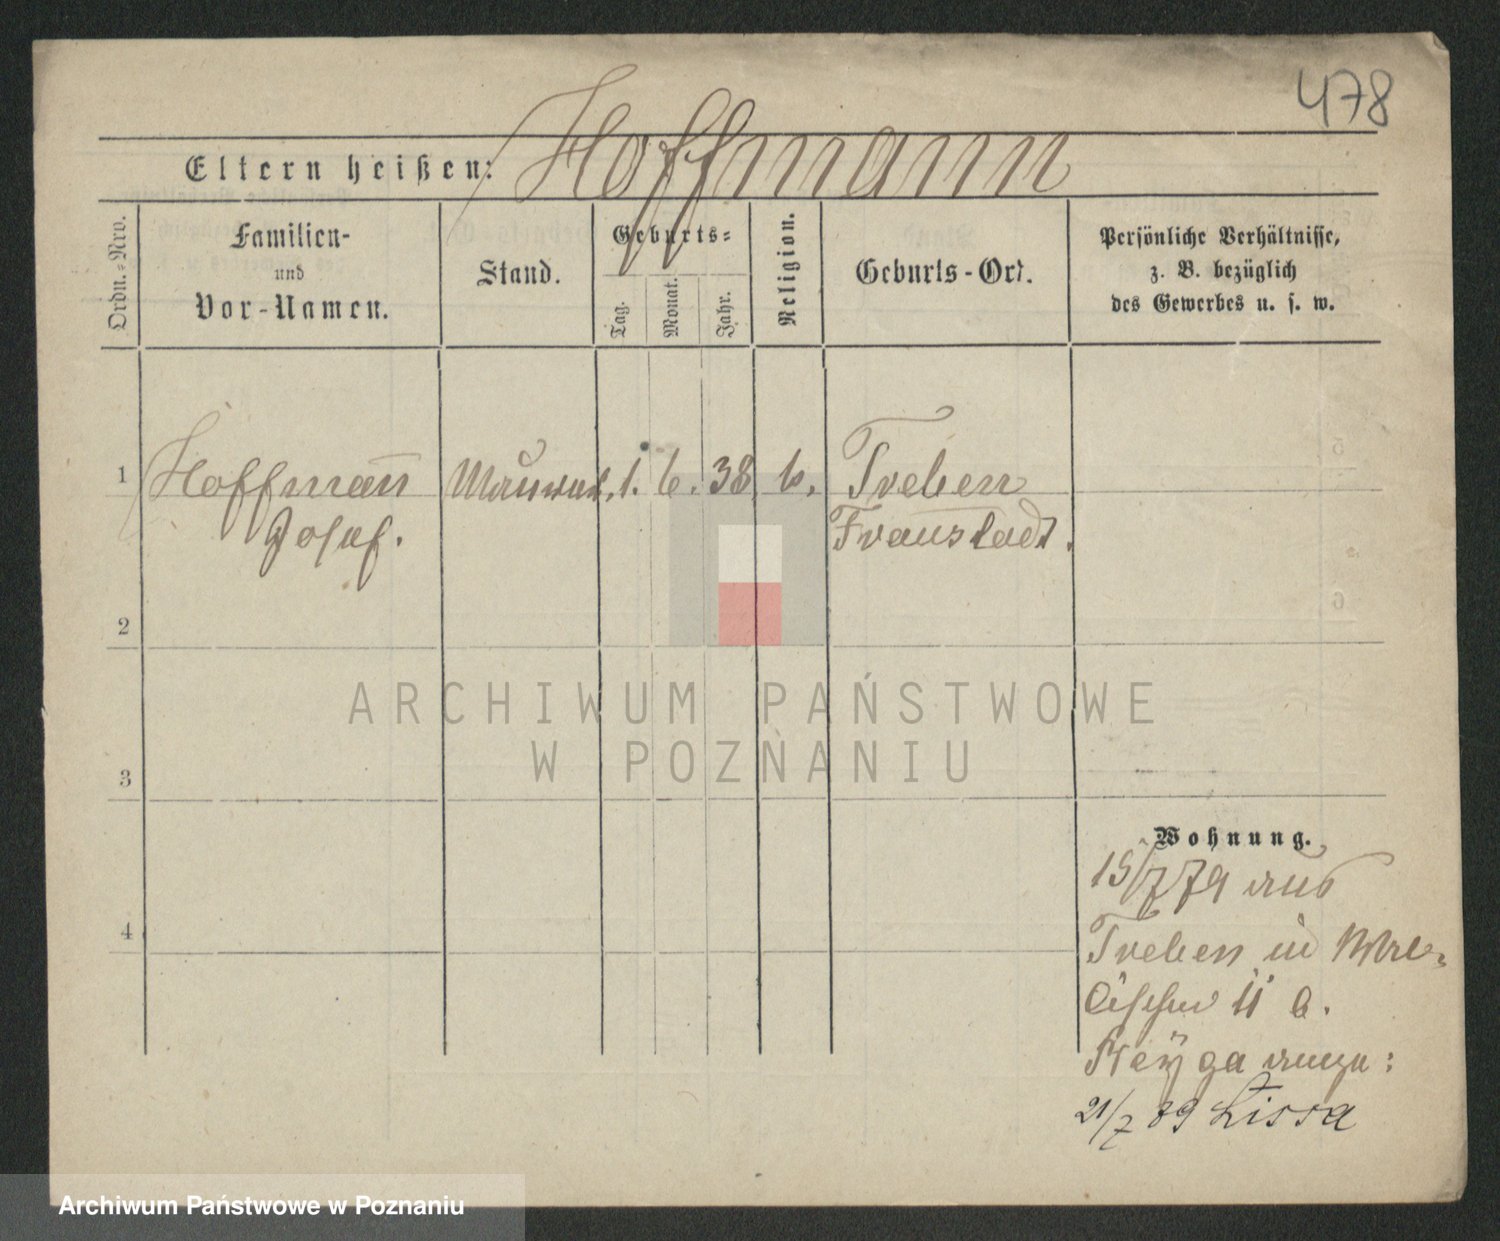 478
Eltern heißen: Hoffmann
Ordn.=Nro.
Familien-
und
Vor-Namen.
Stand.
Geburts=
Tag.
Monat.
Jahr.
Religion.
Geburts-Ort.
Persönliche Verhältnisse,
z. B. bezüglich
des Gewerbes u. s. w.
1 Hoffmann 1. 6. 38 k. Treben
Josef. Fraustadt.
2
ARCHIWUM PAŃSTWOWE
W POZNANIU
3
Wohnung.
15/7 79 aus
Treben in
4
21/7 89 Lissa
Archiwum Państwowe w Poznaniu